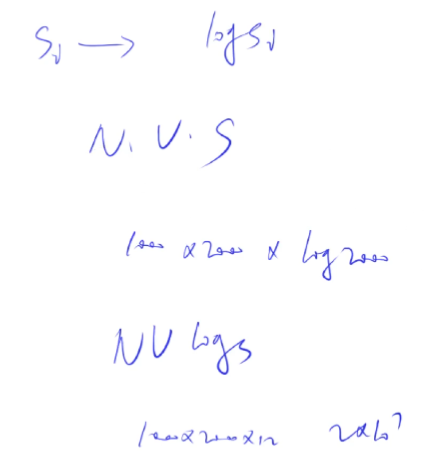 Sᵢ → log Sᵢ
N. V. S
1000 × 2000 × log 2000
NV log s
1000 × 2000 × 12 2×10⁷